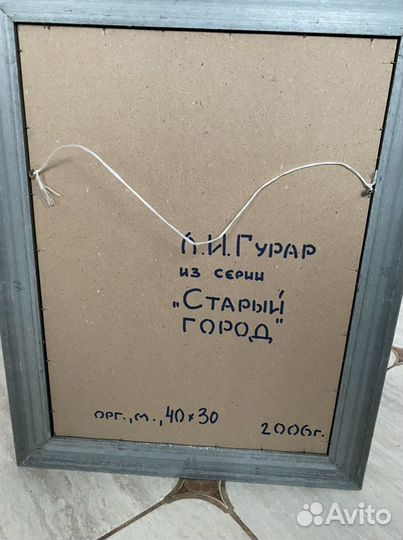 Л.И. Гурар
из серии
„Старый
город"
орг., м., 40×30
2006г.
Avito